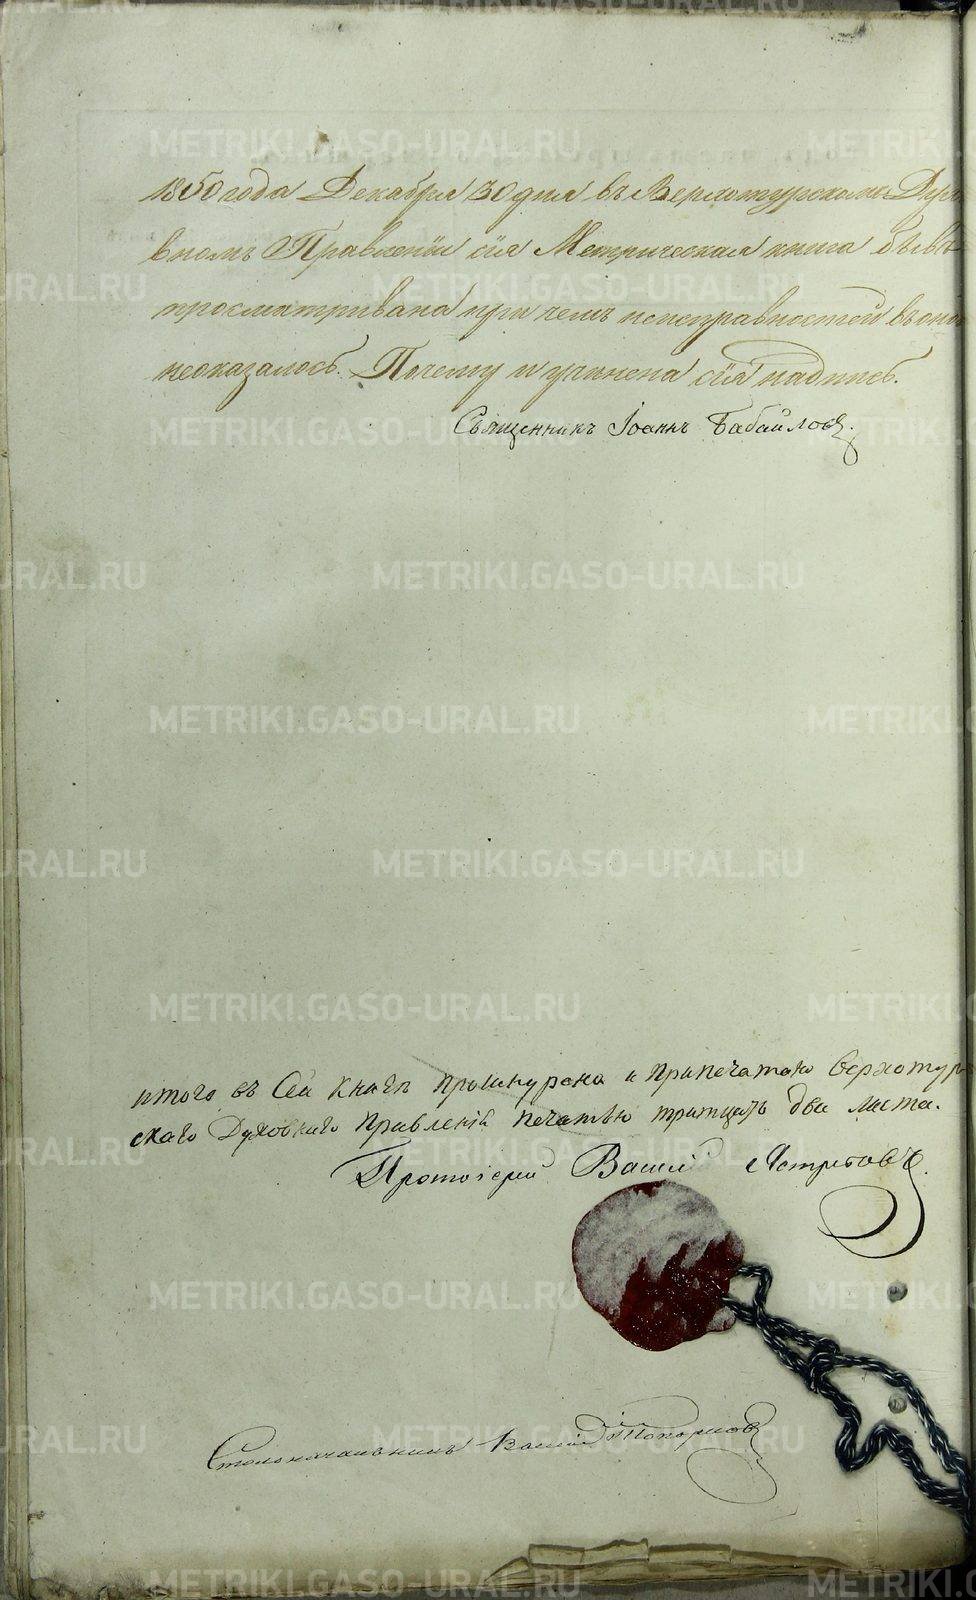 1850 года Декабря 30 дня въ Верхотурскомъ Духо
вномъ Правленіи сія Метрическая книга была
просматривана при чемъ неисправностей въ оной
неоказалось. Почему и учинена сія надпись.
Священникъ Іоаннъ Бабайловъ.
итого въ Сей Книгѣ прошнурено и припечатано верхотур
скаго Духовнаго Правленія печатью тритцать два листа.
Протоіерей Василій Ястребовъ.
Столоначальникъ Василій Топорковъ